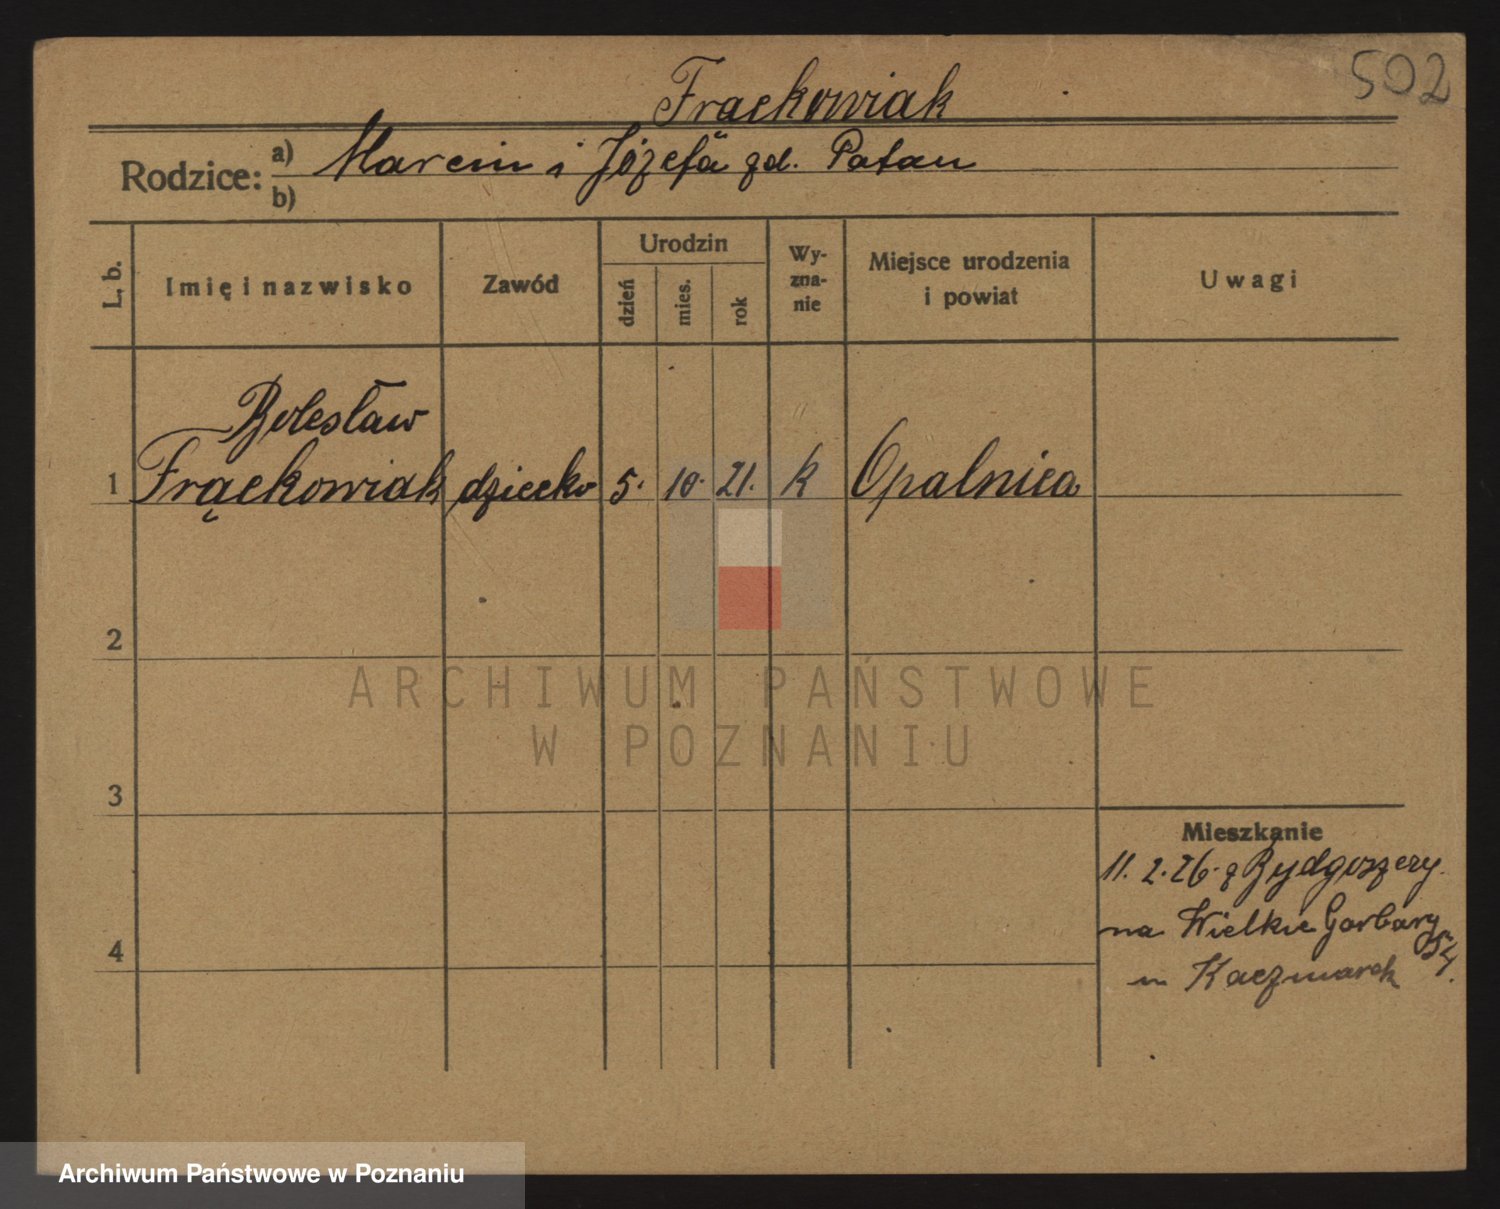 502
Frackowiak
Rodzice: a) Marcin i Józefa zd. Patan
b)
L. b.
Imię i nazwisko
Zawód
Urodzin
dzień
mies.
rok
Wy-
zna-
nie
Miejsce urodzenia
i powiat
Uwagi
Bolesław
1 Frąckowiak dziecko 5. 10. 21. k Opalnica
2
3
4
Mieszkanie
11. 2. 26. z Bydgoszczy.
na Wielkie Garbary
u Kaczmarek
ARCHIWUM PAŃSTWOWE
W POZNANIU
Archiwum Państwowe w Poznaniu